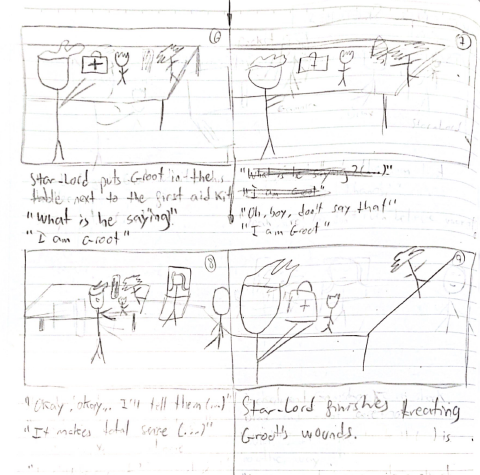 6
Star-Lord puts Groot in the
table next to the first aid kit
"What is he saying"
"I am Groot"
7
"What is he saying? (...)"
"I am Groot"
"Oh, boy, don't say that"
"I am Groot"
8
"Okay, okay... I'll tell them (...)"
"It makes total sense (...)"
9
Star-Lord finishes treating
Groot's wounds.
is